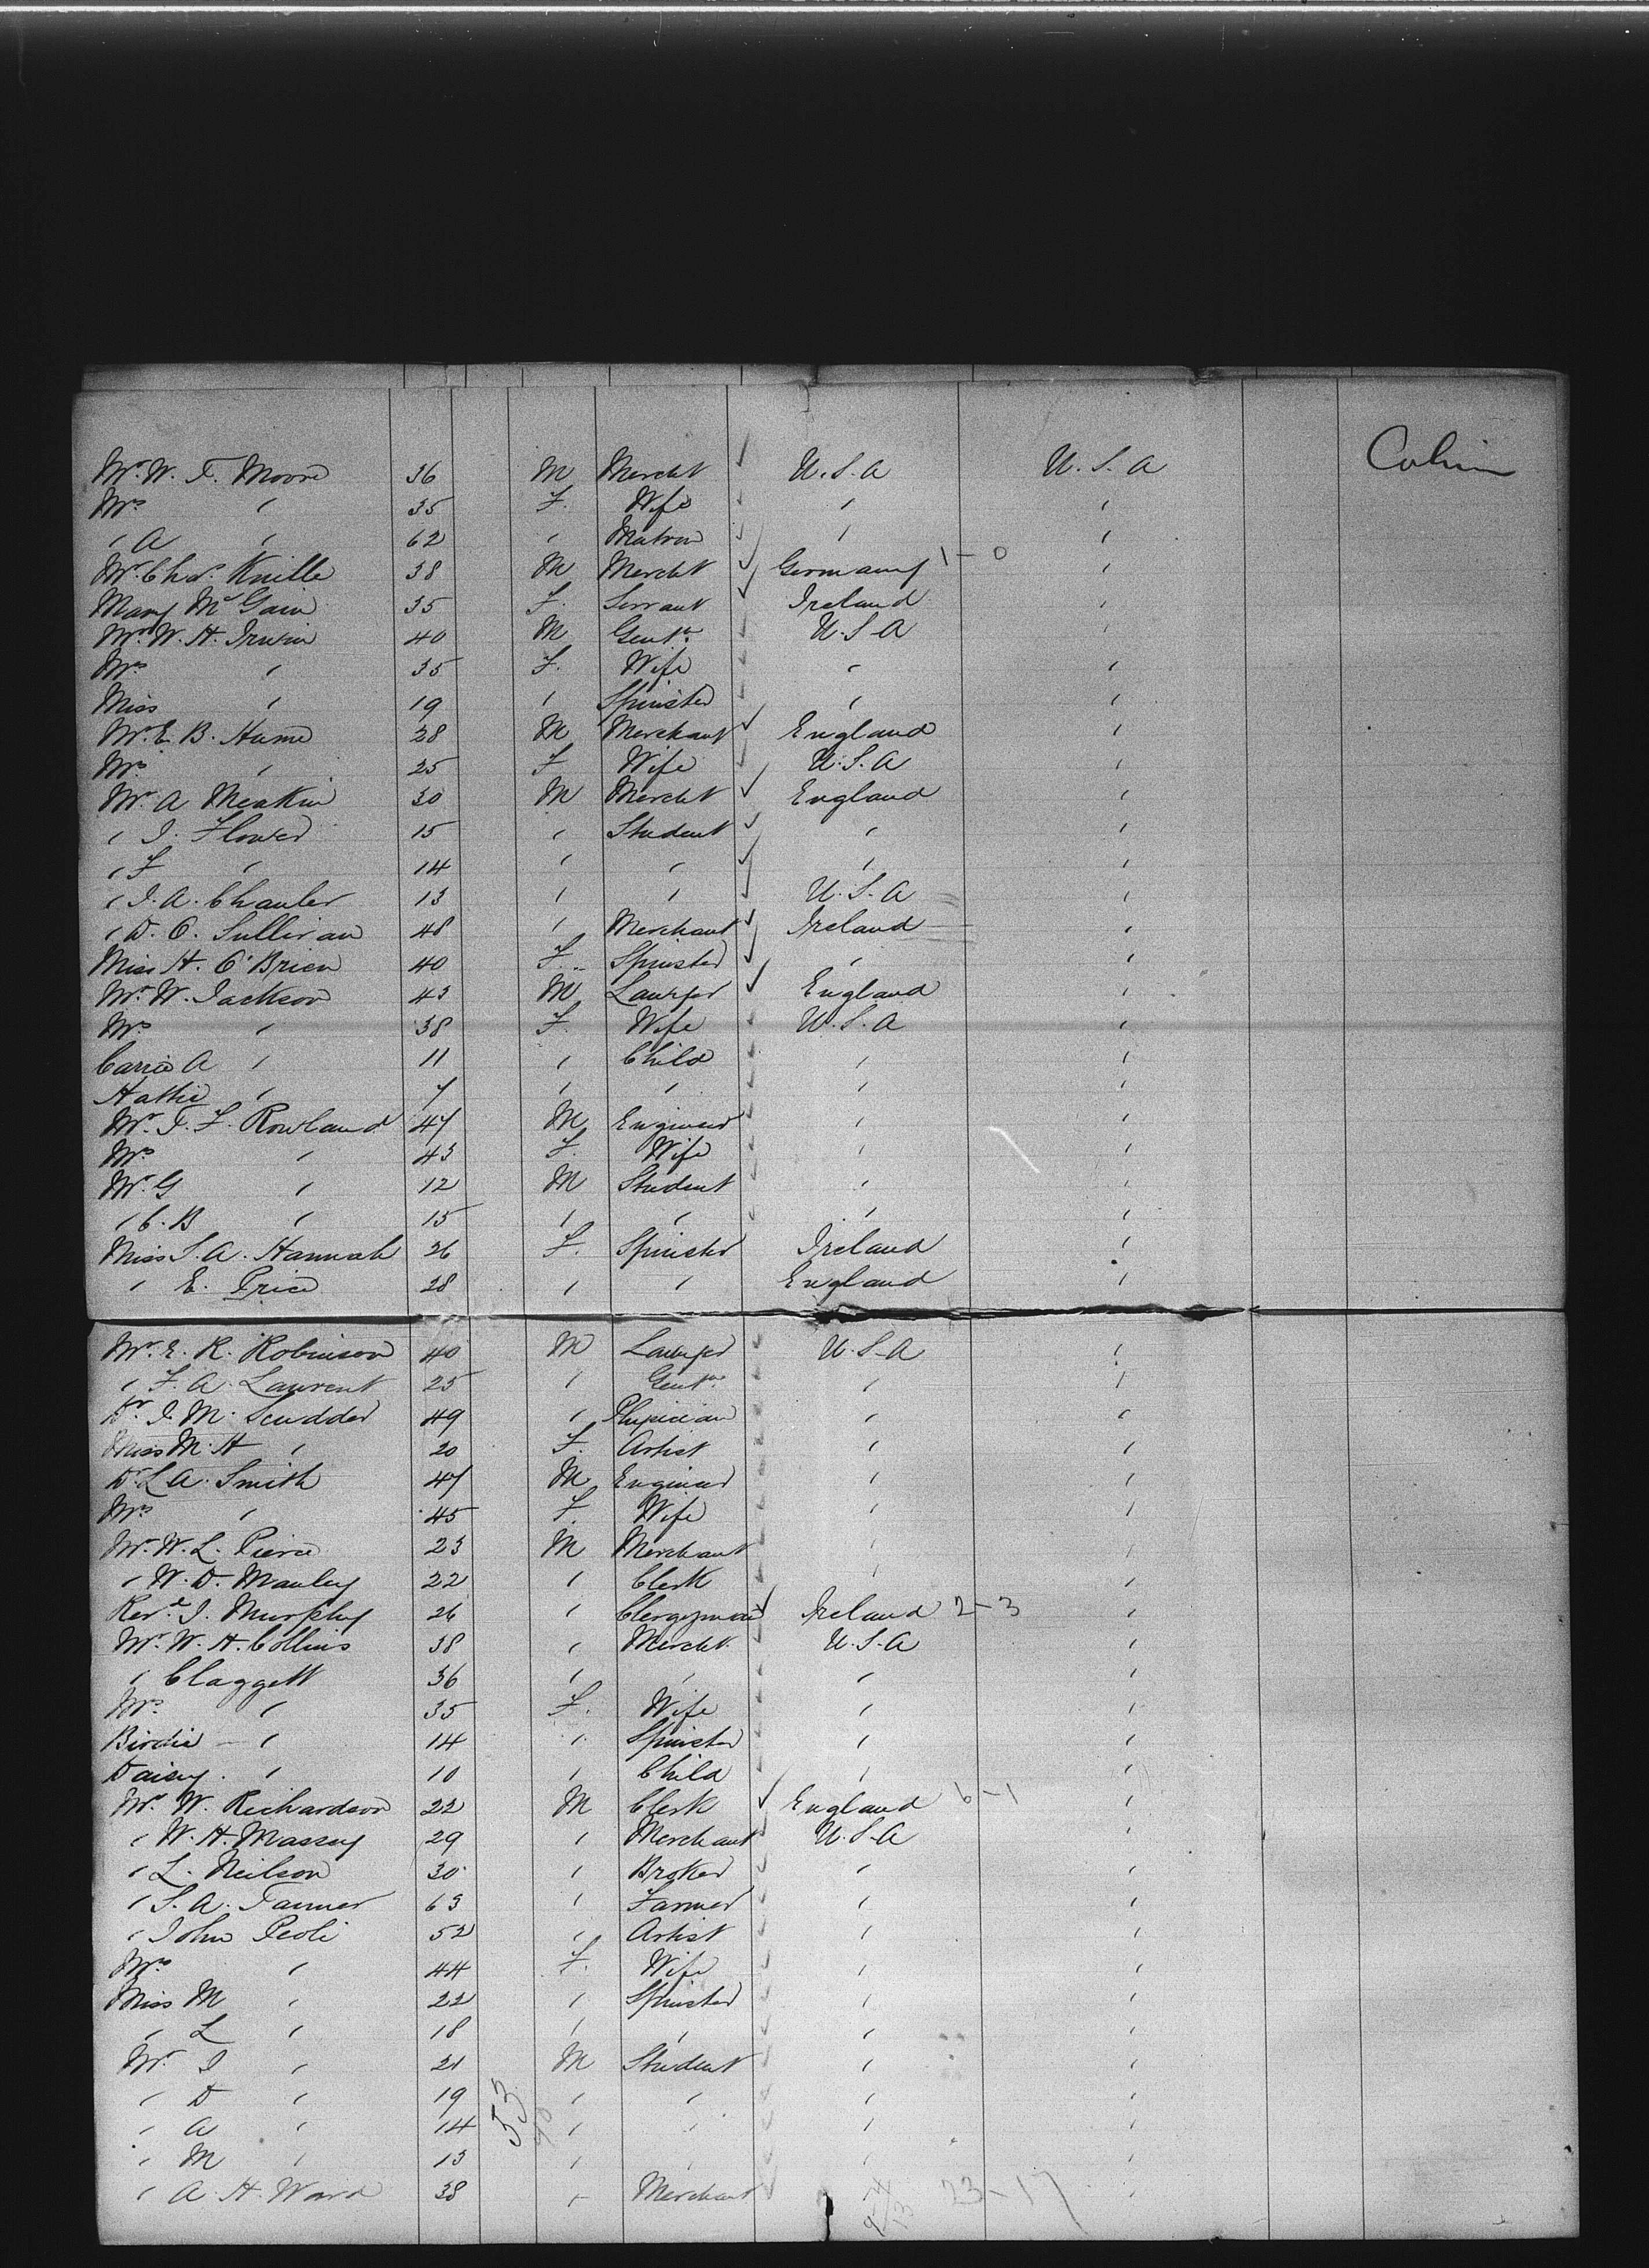 Mr. W. F. Moore 36 M Mercht U.S.A U.S.A Cabin
Mrs " 35 F. Wife " "
" A " 62 " Matron " "
Mr. Chs. Knille 38 M Mercht Germany 1-0 "
Mary McGain 35 F. Servant Ireland "
Mr. W. H. Irwin 40 M Gentn. U.S.A "
Mrs " 35 F. Wife " "
Miss " 19 " Spinster " "
Mr. E. B. Hume 28 M Merchant England "
Mrs " 25 F Wife U.S.A "
Mr. A Meakin 30 M Mercht England "
" J. Flower 15 " Student " "
" F " 14 " " " "
" J. A. Chanler 13 " " U.S.A "
" D. O. Sullivan 48 " Merchant Ireland "
Miss H. O'Brien 40 F. Spinster " "
Mr. W. Jackson 43 M Lawyer England "
Mrs " 38 F. Wife U.S.A "
Carrie A " 11 " Child " "
Hattie " 7 " " " "
Mr. T. F. Rowland 47 M Engineer " "
Mrs " 43 F. Wife " "
Mr. G " 12 M Student " "
" C. B " 15 " " " "
Miss S. A. Hannah 26 F. Spinster Ireland "
" E. Price 28 " " England "
Mr. E. R. Robinson 40 M Lawyer U.S.A "
" F. A. Laurent 25 " Gentn. " "
Dr. J. M. Scudder 49 " Physician " "
Miss M. H " 20 F. Artist " "
Dr. L A. Smith 47 M Engineer " "
Mrs " 45 F. Wife " "
Mr. W. L. Pierce 23 M Merchant " "
" W. D. Manley 22 " Clerk " "
Revd. J. Murphy 26 " Clergyman Ireland 2-3 "
Mr. W. H. Collins 38 " Mercht. U.S.A "
" Claggett 36 " " " "
Mrs " 35 F. Wife " "
Birdie " 14 " Spinster " "
Daisy " 10 " Child " "
Mr. W. Richardson 22 M Clerk England 6-1 "
" W. H. Massey 29 " Merchant U.S.A "
" L. Neilson 30 " Broker " "
" S. A. Tanner 63 " Farmer " "
" John Peoli 52 " Artist " "
Mrs " 44 F. Wife " "
Miss M " 22 " Spinster " "
" L " 18 " " " "
Mr. J " 21 M Student " "
" D " 19 " " " "
" A " 14 53 " " " "
" M " 13 " " " "
" A. H. Ward 38 " Merchant " 23-17 "